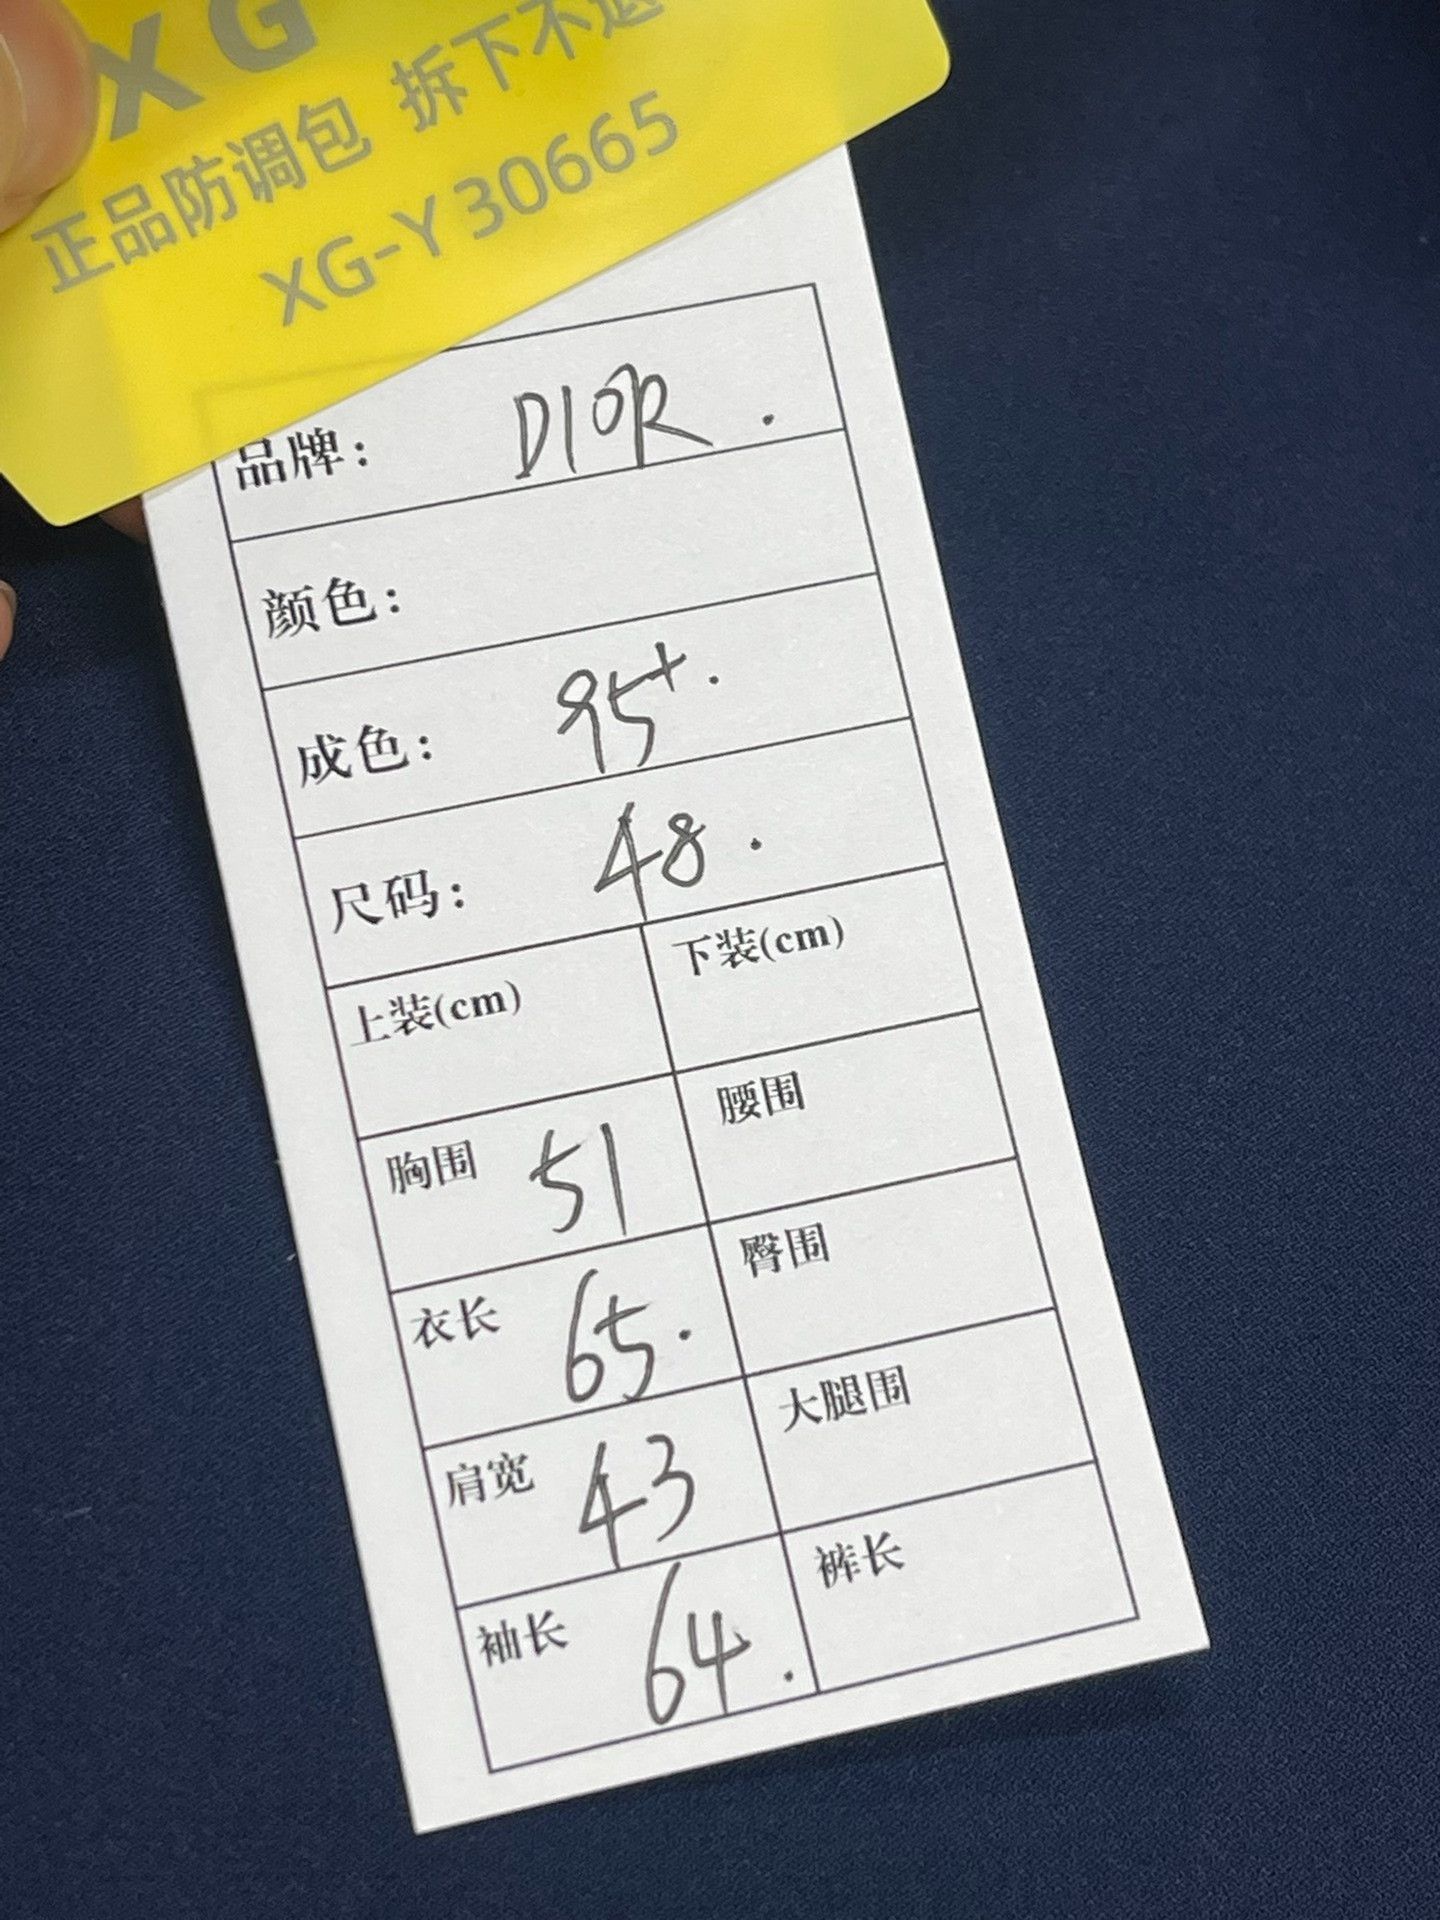 XG
正品防调包 拆下不退
XG-Y30665
品牌： DIOR.
颜色：
成色： 95+.
尺码： 48.
上装(cm) 下装(cm)
胸围 51 腰围
衣长 65. 臀围
肩宽 43 大腿围
袖长 64. 裤长